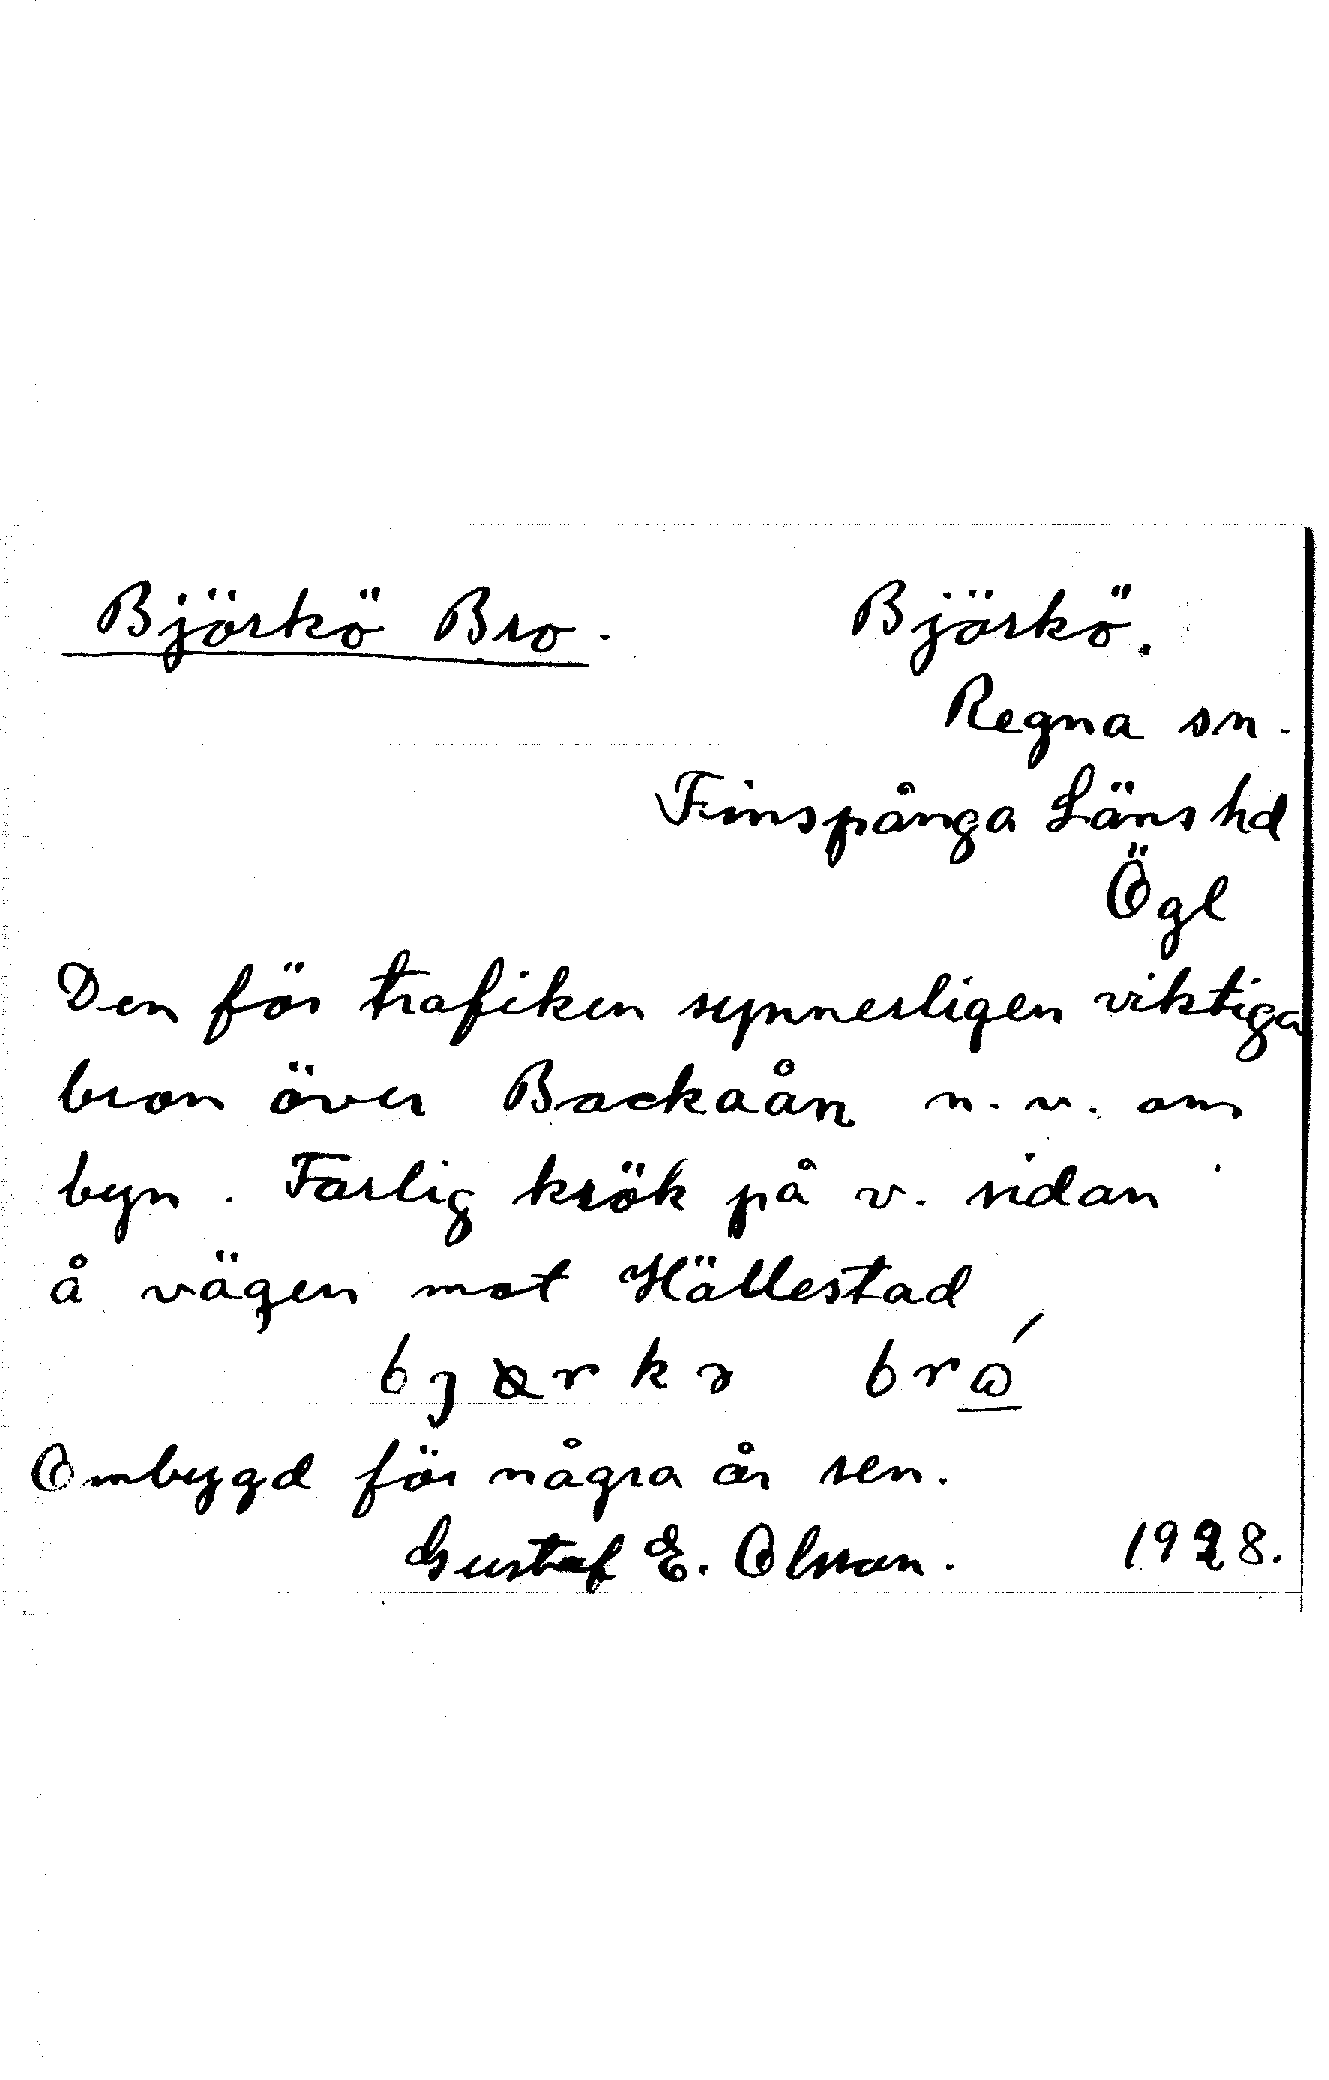 Björkö Bro. Björkö.
Regna sn.
Finspånga Läns hd
Ögl
Den för trafiken synnerligen viktiga
bron över Backaån n.v. om
byn. Farlig krök på v. sidan
å vägen mot Hällestad
Ombygd för några år sen.
Gustaf E. Olsson. 1928.